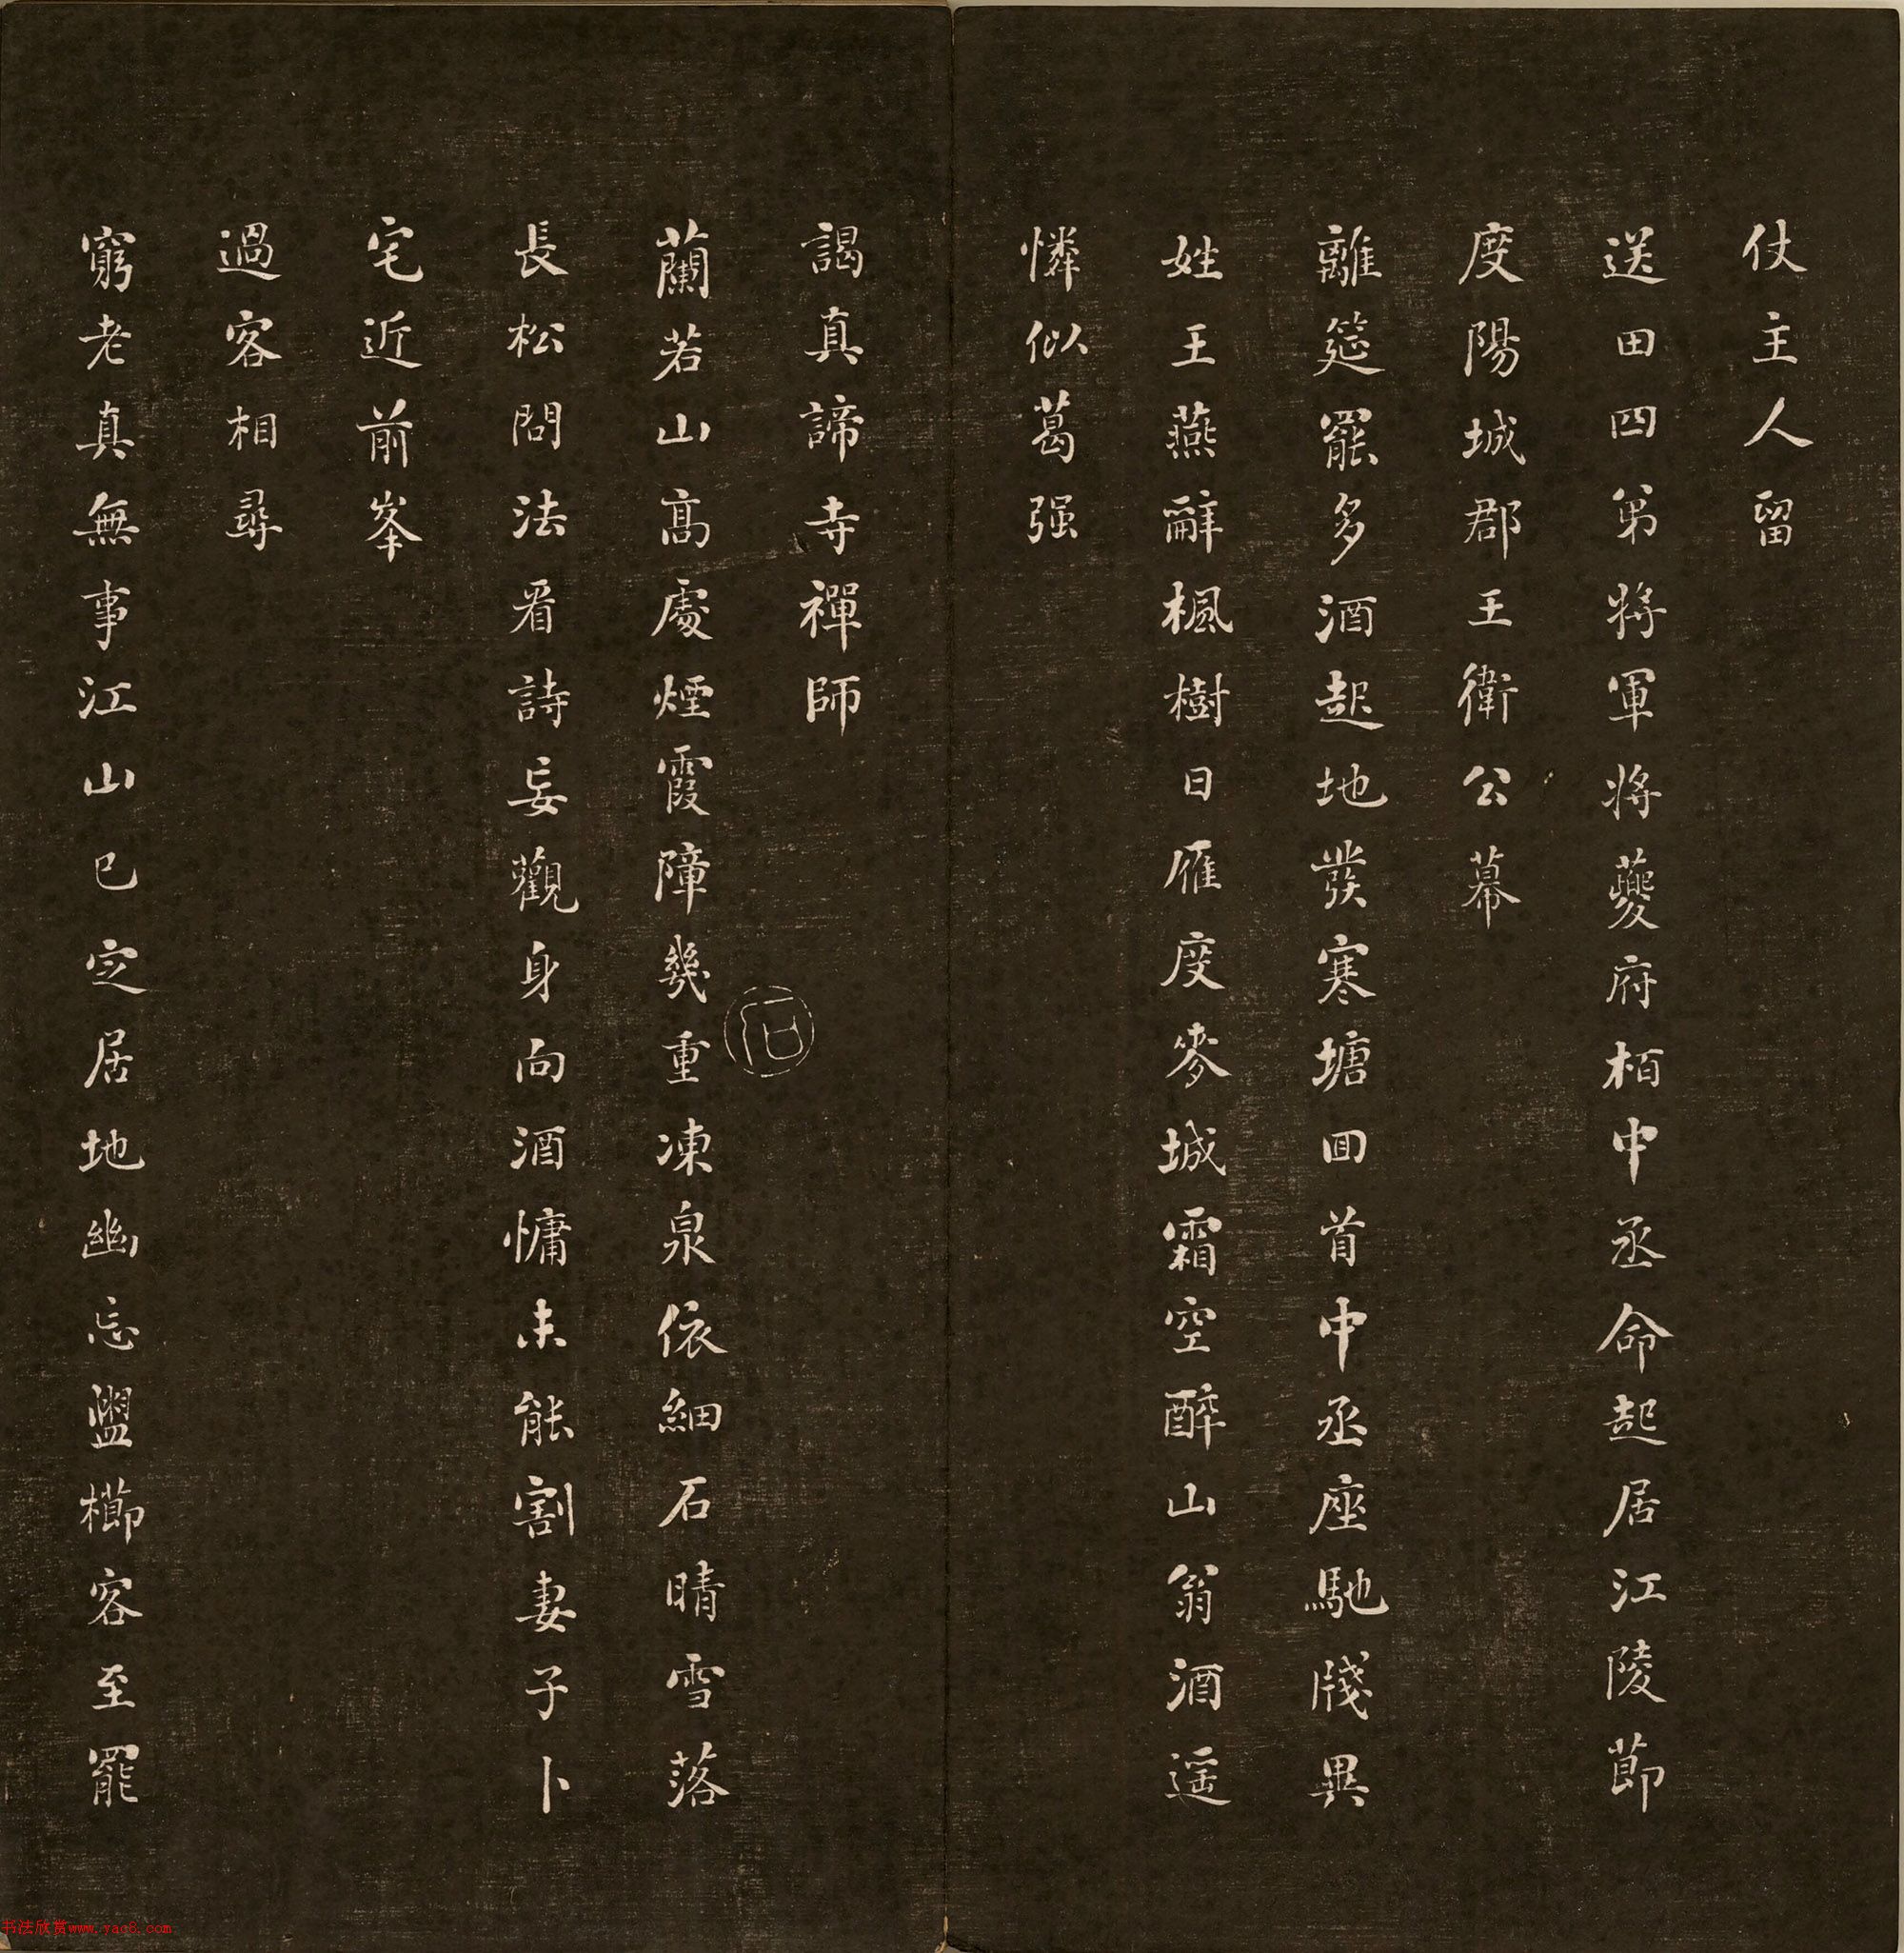 仗主人留
送田四弟將軍將夔府栢中丞命起居江陵節
度陽城郡王衛公幕
離筵罷多酒起地發寒塘回首中丞座馳牋異
姓王燕辭楓樹日雁度麥城霜空醉山翁酒遥
憐似葛强
謁真諦寺禪師
蘭若山高處煙霞障幾重凍泉依細石晴雪落
長松問法看詩妄觀身向酒慵未能割妻子卜
宅近前峯
過客相尋
窮老真無事江山已定居地幽忘盥櫛客至罷
石
书法欣赏www.yac8.com